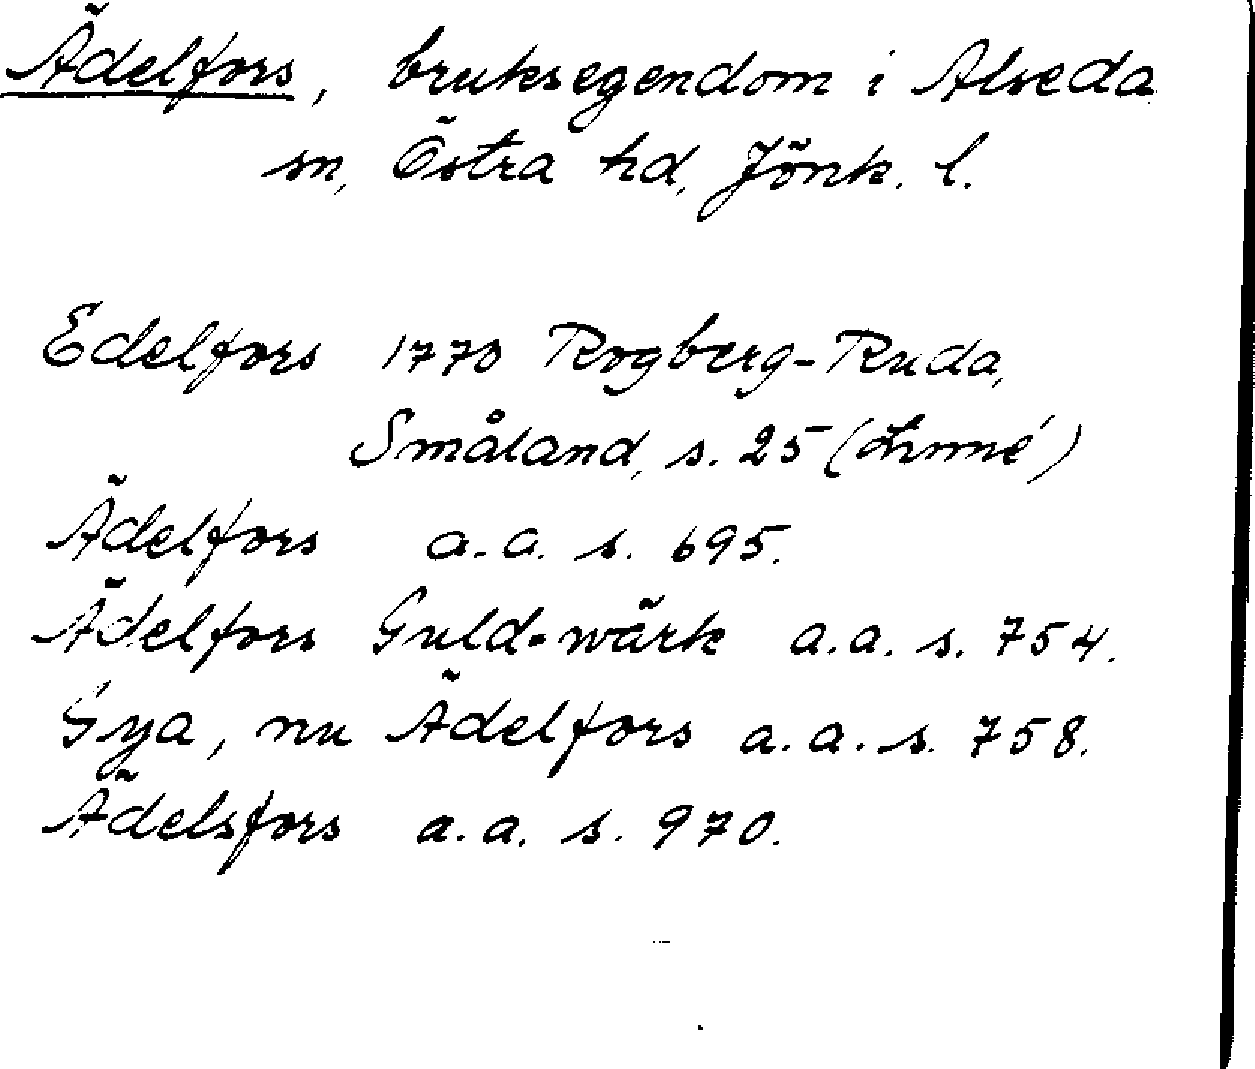 Ädelfors, bruksegendom i Alseda
sn, Östra hd, Jönk. l.
Edelfors 1770 Rogberg-Ruda,
Småland, s. 25 (Linné)
Ädelfors a.a. s. 695.
Ädelfors Guld-wärk a.a. s. 754.
Gya, nu Ädelfors a.a. s. 758.
Ädelsfors a.a. s. 970.